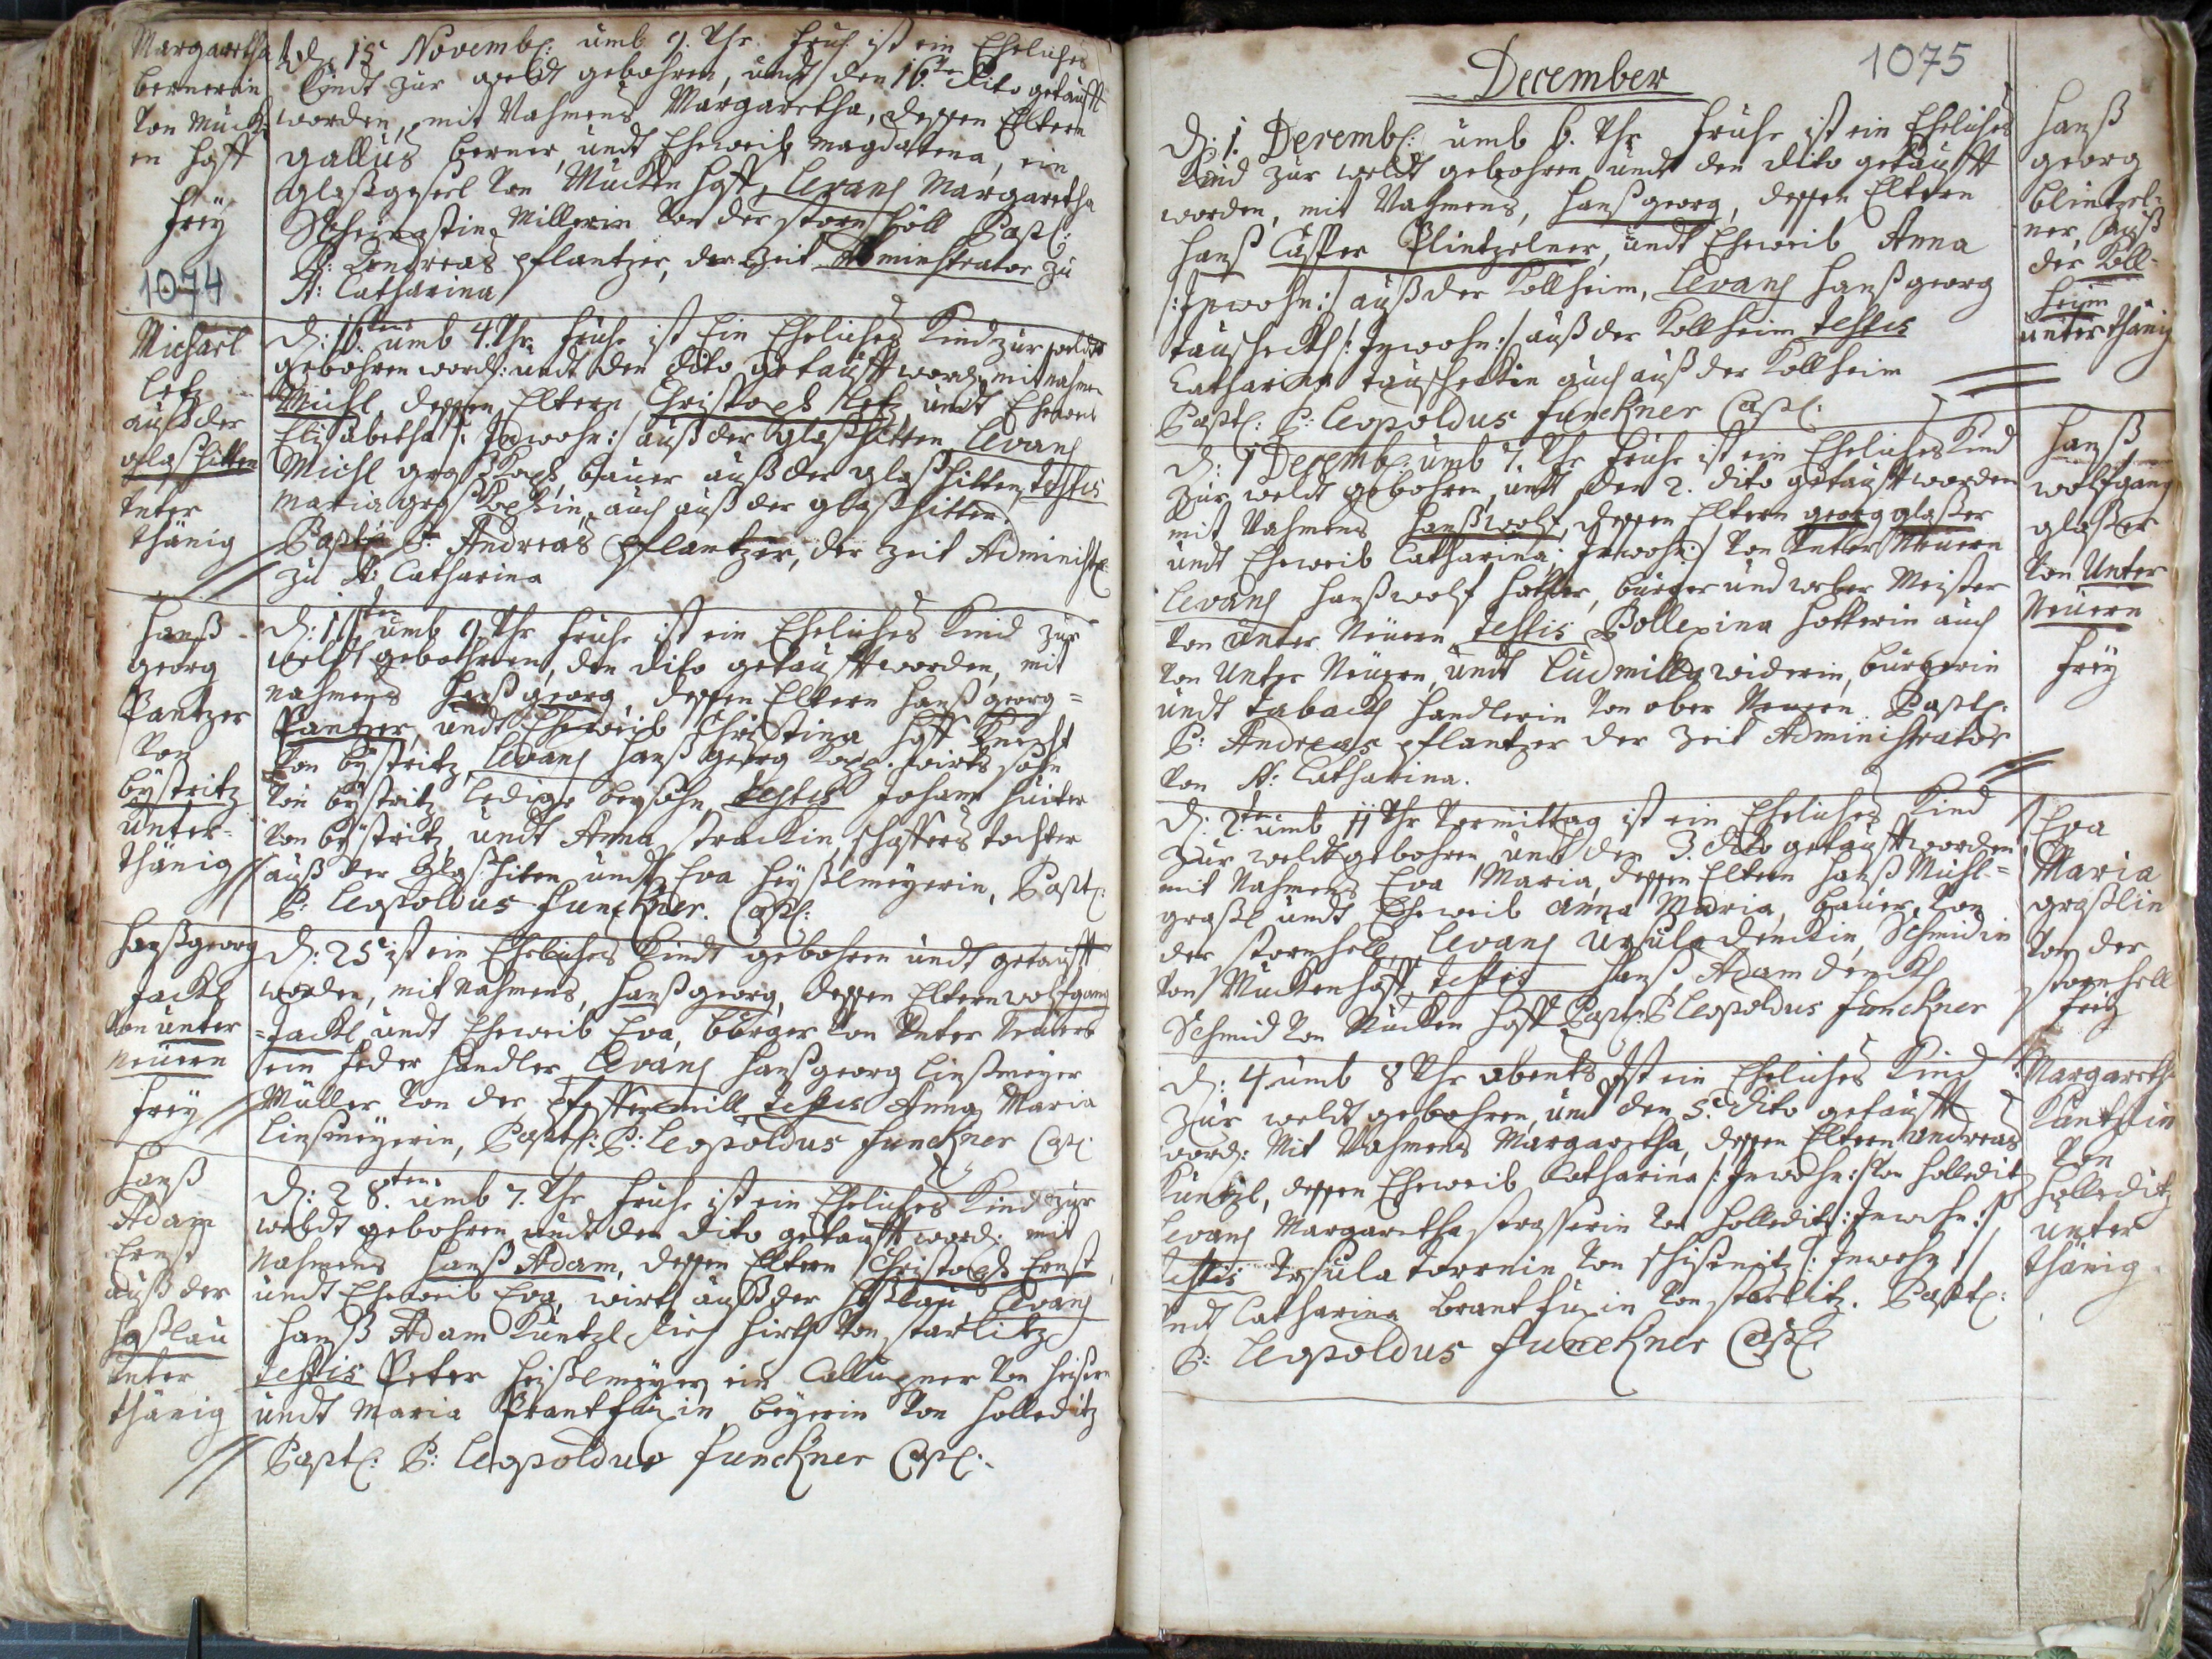 Margaretha
bernerin
Von Muck
en hoff
frey
1074
d. 15 Novemb: umb 9. Uhr fruh ist ein Eheliches
Kindt zur weldt gebohren, undt den 16ten dito getaufft
worden, mit Nahmens Margaretha, dessen Eltern
gallus berner, undt Eheweib Magdalena, ein
glaßgsell Von Mucken hoff, Levans Margaretha
Millerin Von der storn höll Bapt:
P: Andreas pflantzer, der Zeit Administrator zu
St: Catharina
Michael
letz
auß der
glaßhitten
Unter
thänig
d: 16ten umb 4. Uhr fruhe ist Ein Eheliches Kind zur weldt
gebohren word: undt den dito getaufft word: mit nahmen
Michl, dessen Eltern Christoph letz, undt Eheweib
Elisabetha /: Inwohn :/ auß der glaßhitten Levans
Michl groß Kopff, bauer auß der glaßhitten, testis
Maria groß Kopffin, auch auß der glaßhitten.
Bapt: P: Andreas pflantzer, der Zeit Administ:
zu St: Catharina
Hanß
georg
Pantzer
Von
bystritz
unter-
thänig
umb 9 Uhr fruhe ist ein Eheliches Kind zur
weldt gebohren, den dito getaufft worden, mit
nahmens Hanß georg, dessen Eltern Hanß georg=
Pantzer, undt Eheweib Christina, hoff Knecht
Von bystritz, Levans Hanß georg wirts sohn
Von bystritz ledig testis Johann
Von bystritz, undt Anna strackin, schaffers tochter
auß der Glaßhiten undt Eva heyßlmeyerin, Bapt:
P: Leopoldus funckner. Capl:
Hanß georg
Jackl
Von unter
neuern
frey
d: 25t ist ein Eheliches Kindt gebohren undt getaufft
worden, mit Nahmens, Hanß georg, dessen Eltern wolfgang
=Jackl undt Eheweib Eva, bürger Von Unter Neuern
ein feder handler Levans Hanß georg linßmeyer
Müller Von der pfeffermill testis Anna Maria
linßmeyerin, Bapt: P: Leopoldus funckner Capl:
Hanß
Adam
Ernst
auß der
haßlau
Unter
thänig
d: 28.ten umb 7. Uhr fruhe ist ein Eheliches Kind zur
weldt gebohren undt den dito getaufft word: mit
Nahmens Hanß Adam, dessen Eltern Christoph Ernst,
undt Eheweib Eva, wirth auß der haßlau Levans
Hanß Adam Küntzl, hirth Von starlitz
testis Peter heißlmeyer, ein Callupner Von
undt Maria Brantfuxin beyerin Von holleditz
Bapt: P: Leopoldus funckner Capl:
December 1075
d: 1. Decemb: umb 6. Uhr fruhe ist ein Eheliches
Kind zur weldt gebohren undt den dito getaufft
worden, mit Nahmens, Hanß georg, dessen Eltern
Hanß Casper Plintzelner, undt Eheweib Anna
/: Inwohn :/ auß der Kollheim, Levans Hanß georg
tauscheckh /: Inwohn :/ auß der Kollheim testis
Catharina tauscheckin auch auß der Kollheim
Bapt: P: Leopoldus funckner Capl:
Hanß
georg
blintzel-
ner, auß
der Koll-
heim
unterthänig
d: 1 Decemb: umb 7. Uhr fruhe ist ein Eheliches Kind
zur weldt gebohren, undt den 2. dito getaufft worden
mit Nahmens Hanß wolf, dessen Eltern georg glaßer
undt Eheweib Catharina: Inwohn :/ Von Unter Neuern
Levans Hanß wolf hotter, bürger und weber Meister
Von Unter Neuern testis Pollexina hotterin auch
Von Unter Neuern, undt Ludmilla widerin, bürgerin
undt taback handlerin Von ober Neuern. Bapt:
P: Andreas pflantzer der Zeit Administrator
Von St: Catharina.
Hanß
wolfgang
glaßer
Von Unter
Neuern
frey
d: 2.ten umb 11 Uhr Vormittag ist ein Eheliches Kind
zur weldt gebohren und den 3. dito getaufft worden
mit Nahmens Eva Maria, dessen Eltern Hanß Michl=
graßl undt Eheweib Anna Maria, bauer Von
der stornhell, Levans Ursula denckin, Schmidin
Von Muckenhoff, testis Hanß Adam denckh
Schmid Von Mucken hoff Bapt: P Leopoldus funckner
Eva
Maria
graßlin
Von der
stornhell
frey
d: 4 umb 8 Uhr abents Ist ein Eheliches Kind
zur weldt gebohren, und den 5t dito getaufft
word: Mit Nahmens Margaretha, dessen Eltern Andreas
Küntzl, dessen Eheweib Catharina /: Inwohn :/ Von holledit
Levans Margaretha strasserin Von holleditz: Inwohn :/
testis Ursula Von /: Inwohn :/
undt Catharina brantfuxin Von starlitz. Bapt:
P: Leopoldus funckner Capl:
Margaretha
Küntzlin
Von
holleditz
unter
thänig.